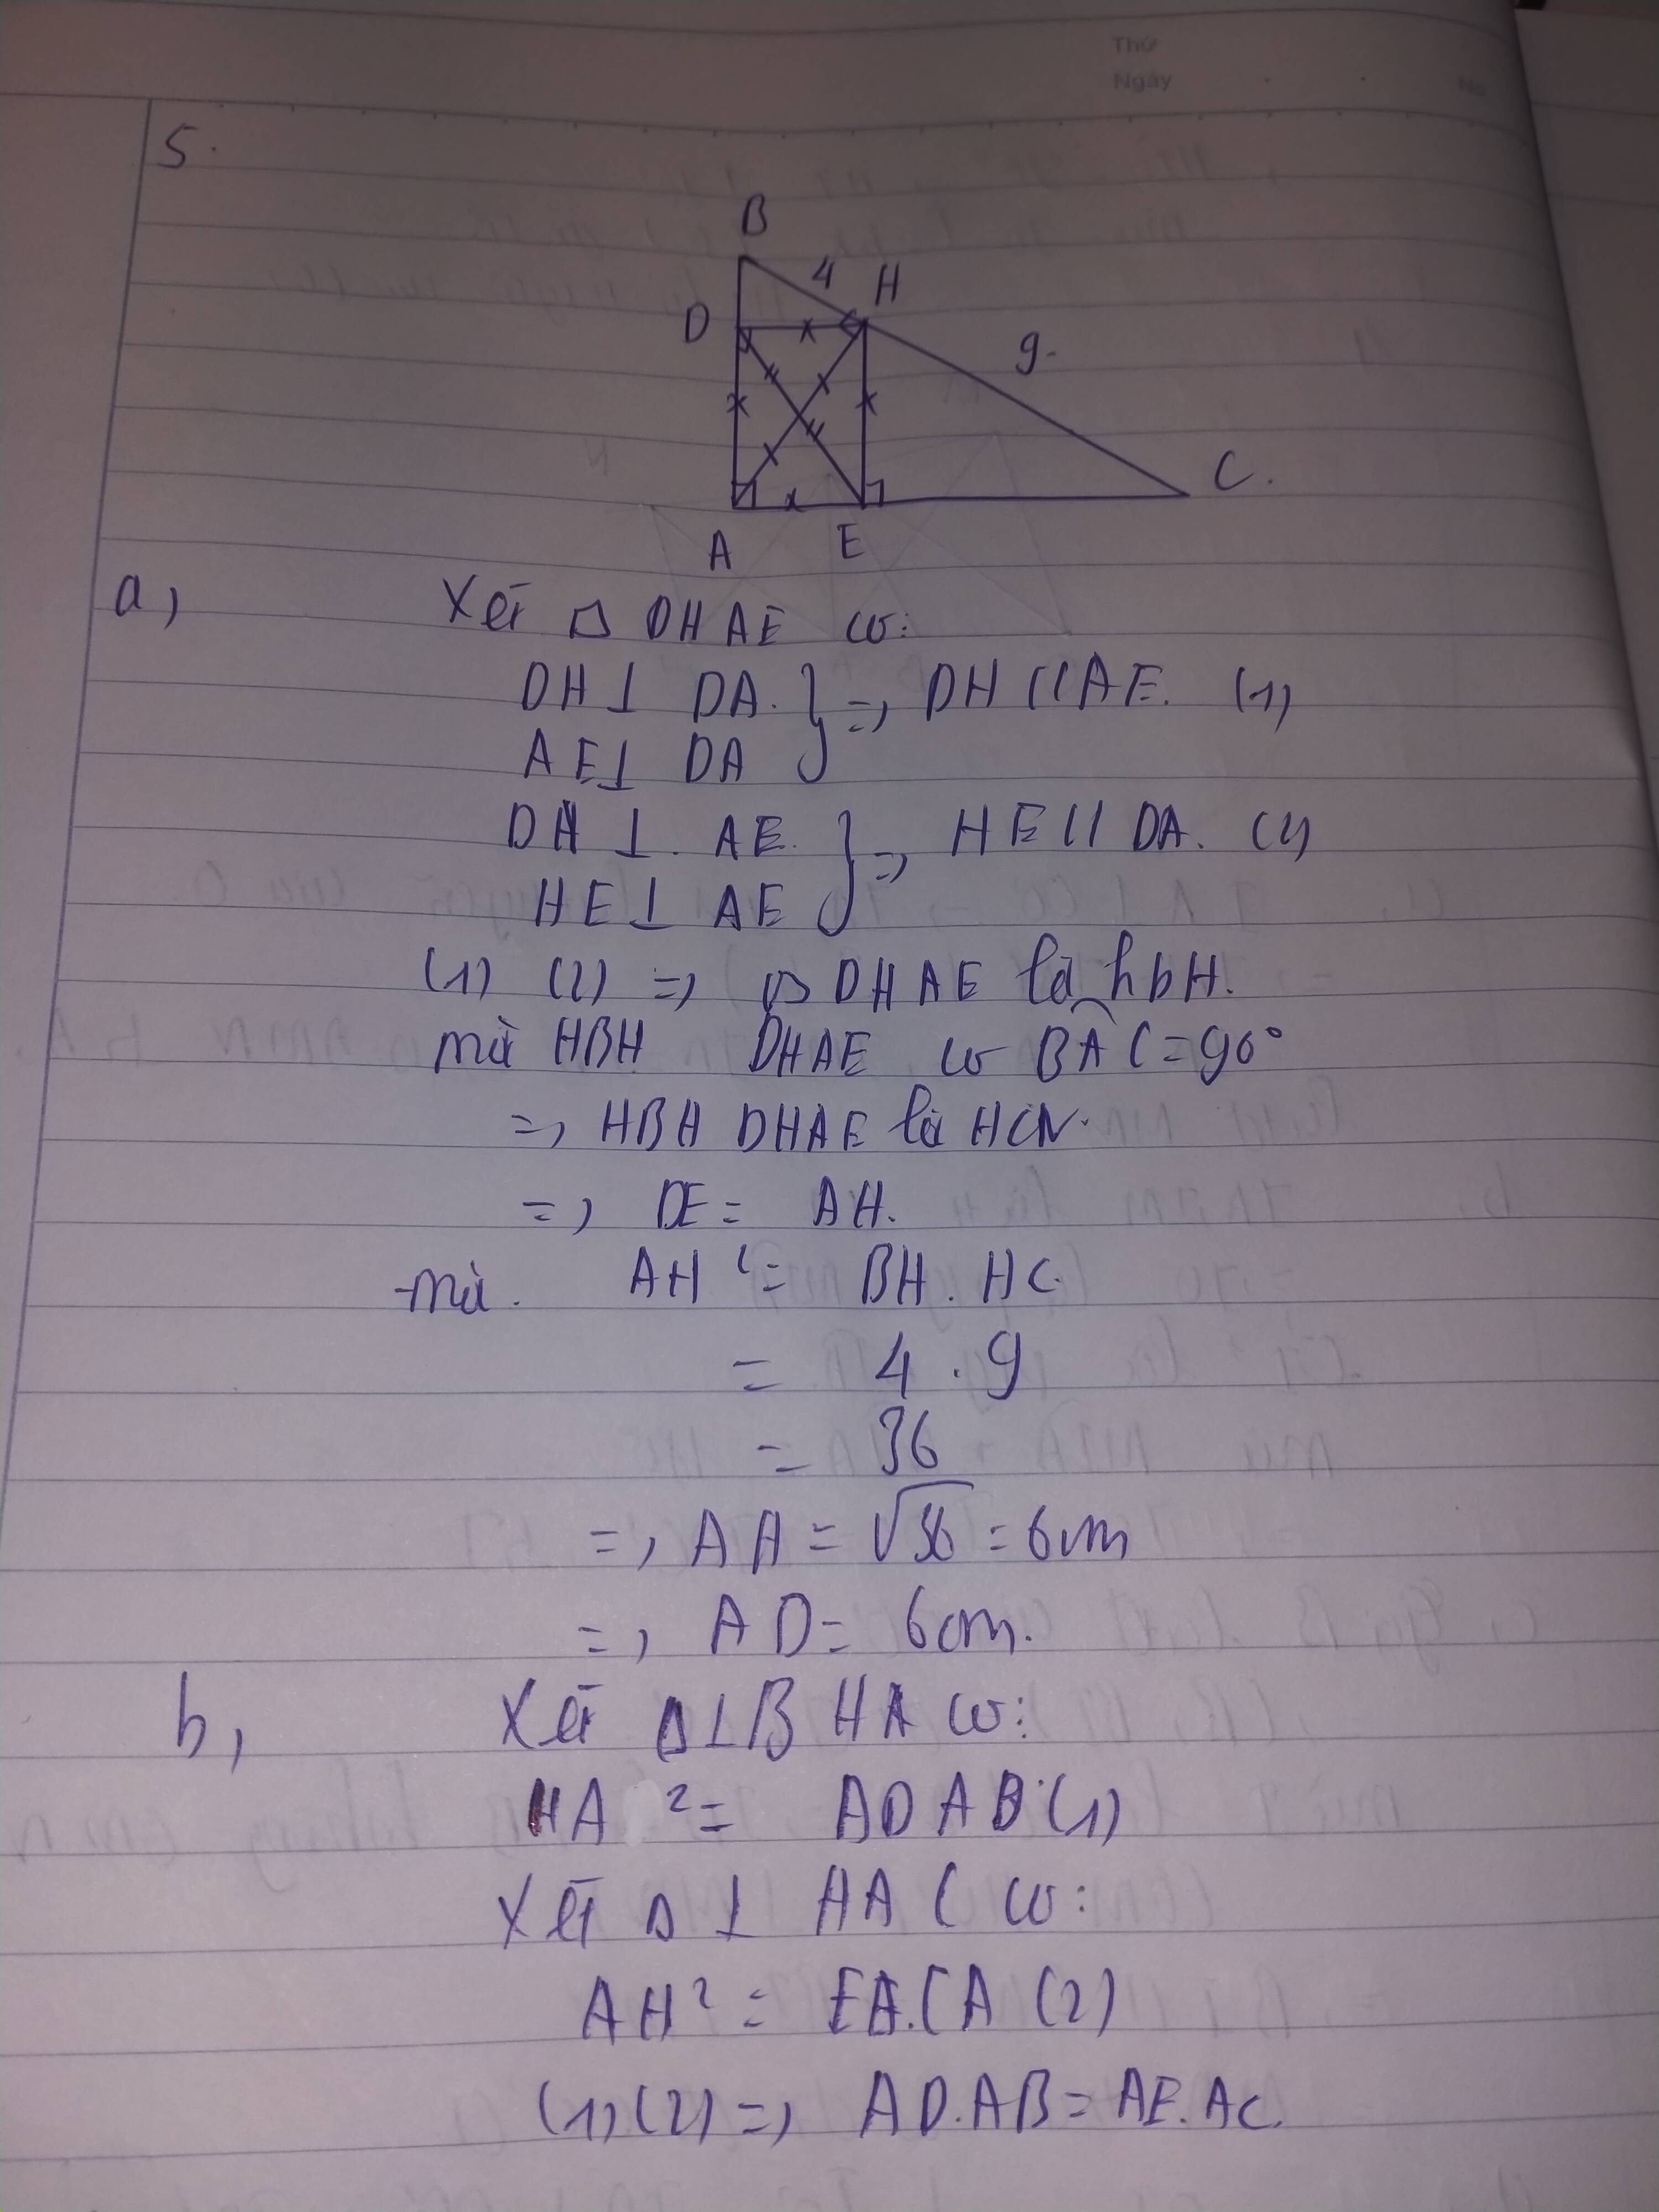 Thứ
Ngày
5.
B
4 H
D
9.
C.
A E
a, Xét ▱ DHAE có:
DH ⊥ DA. } => DH // AE. (1)
AE ⊥ DA
DH ⊥. AE. } => HE // DA. (2)
HE ⊥ AE
(1) (2) => ▱ DHAE là hbH.
mà HBH DHAE có BÂC = 90°
=> HBH DHAE là HCN.
=> DE = AH.
mà. AH² = BH. HC.
= 4 . 9
= 36
=> AH = √36 = 6cm
=> AD = 6cm.
b, Xét Δ⊥ BHA có:
HA² = AD AB (1)
Xét Δ ⊥ HAC có:
AH² = EA.CA (2)
(1) (2) => AD.AB = AE.AC.